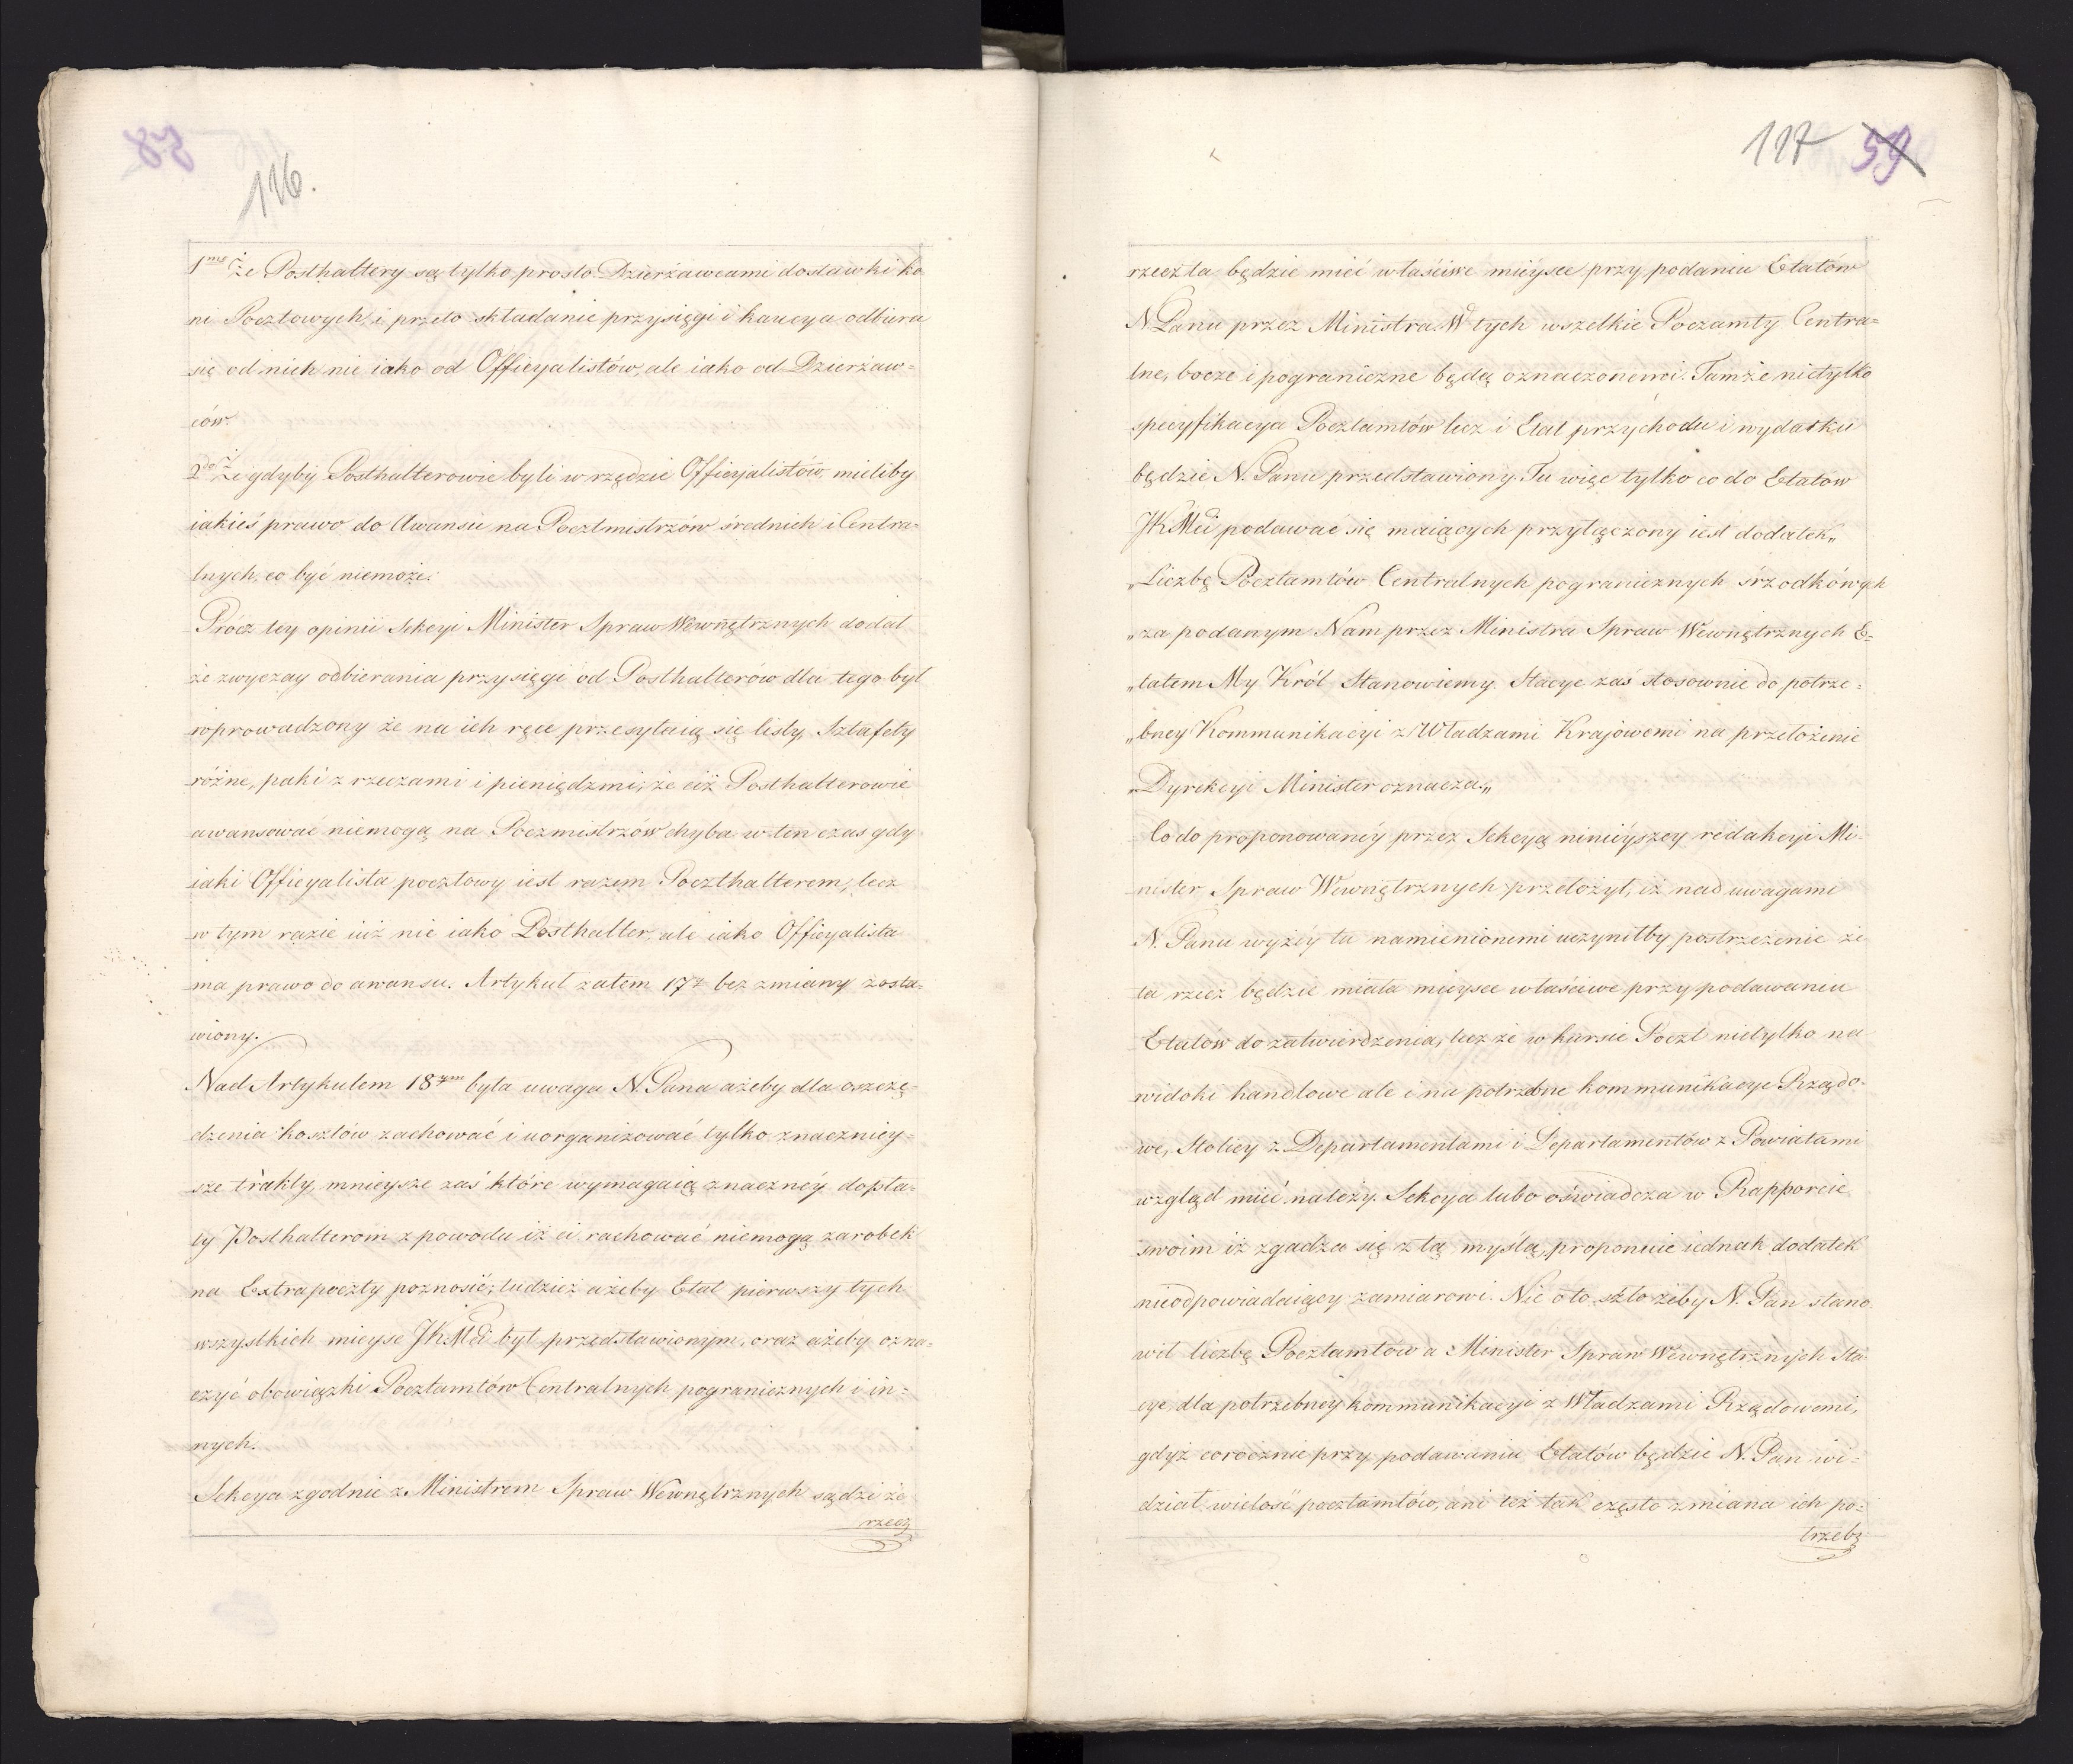 116.
1mo Że Posthaltery są tylko prosto Dzierżawcami dostawki ko
ni Pocztowych, i przeto składanie przysięgi i kaucya odbiera
się od nich nie iako od Officyalistów, ale iako od Dzierżaw=
ców.
2do Że gdyby Posthalterowie byli w rzędzie Officyalistów, mieliby
iakieś prawo do Awansu na Pocztmistrzów średnich i Centra=
lnych, co być niemoże.
Prócz tey opinii Sekcyi Minister Spraw Wewnętrznych dodał
że zwyczay odbierania przysięgi od Posthalterów dla tego był
wprowadzony że na ich ręce przesyłaią się listy, Sztafety
różne, paki z rzeczami i pieniędzmi, że ciż Posthalterowie
awansować niemogą na Poczmistrzów chyba w ten czas gdy
iaki Officyalista pocztowy iest razem Poczthalterem, lecz
w tym razie iuż nie iako Posthalter, ale iako Officyalista
ma prawo do awansu. Artykuł zatem 17ty bez zmiany zosta=
wiony.
Nad Artykułem 18tym była uwaga N. Pana ażeby dla oszczę=
dzenia kosztów zachować i uorganizować tylko znaczniey=
sze trakty, mnieysze zaś które wymagaią znaczney dopła=
ty Posthalterom z powodu iż ci rachować niemogą zarobek
na Extrapoczty poznosić, tudzież ażeby Etat pierwszy tych
wszystkich mieysc JKMci był przedstawionym, oraz ażeby ozna=
czyć obowiązki Pocztamtów Centralnych pogranicznych i in=
nych.
Sekcya zgodnie z Ministrem Spraw Wewnętrznych sądzi że
rzecz
117 59
rzecz ta będzie mieć właściwe mieysce przy podaniu Etatów
N. Panu przez Ministra. W tych wszelkie Poczamty Centra=
lne, bocze i pograniczne będą oznaczonemi. Tamże nietylko
specyfikacya Pocztamtów lecz i Etat przychodu i wydatku
będzie N. Panu przedstawiony. Tu więc tylko co do Etatów
JKMci podawać się maiących przyłączony iest dodatek„
„Liczbę Pocztamtów Centralnych pogranicznych śrzodkówych
„za podanym Nam przez Ministra Spraw Wewnętrznych E=
„tatem My Król Stanowiemy. Stacye zaś stosownie do potrze=
„bney Kommunikacyi z Władzami Krajowemi na przełożenie
„Dyrekcyi Minister oznacza.„
Co do proponowanéy przez Sekcyą ninieyszey redakcyi Mi=
nister Spraw Wewnętrznych przełożył, iż nad uwagami
N. Pana wyżéy tu namienionemi uczyniłby postrzeżenie że
ta rzecz będzie miała mieysce właściwe przy podawaniu
Etatów do zatwierdzenia, lecz że w kursie Poczt nietylko na
widoki handlowe ale i na potrzebne kommunikacye Rządo=
we, Stolicy z Departamentami i Departamentów z Powiatami
wzgląd mieć należy. Sekcya lubo oświadcza w Rapporcie
swoim iż zgadza się z tą myślą, proponuie iednak dodatek
nieodpowiadaiący zamiarowi. Nie o to szło żeby N. Pan stano
wił liczbę Pocztamtów a Minister Spraw Wewnętrznych Sta
cye, dla potrzebney kommunikacyi z Władzami Rządowemi,
gdyż corocznie przy podawaniu Etatów będzie N. Pan wi=
dział wielość pocztamtów, ani też tak częsta zmiana ich po=
trzebą